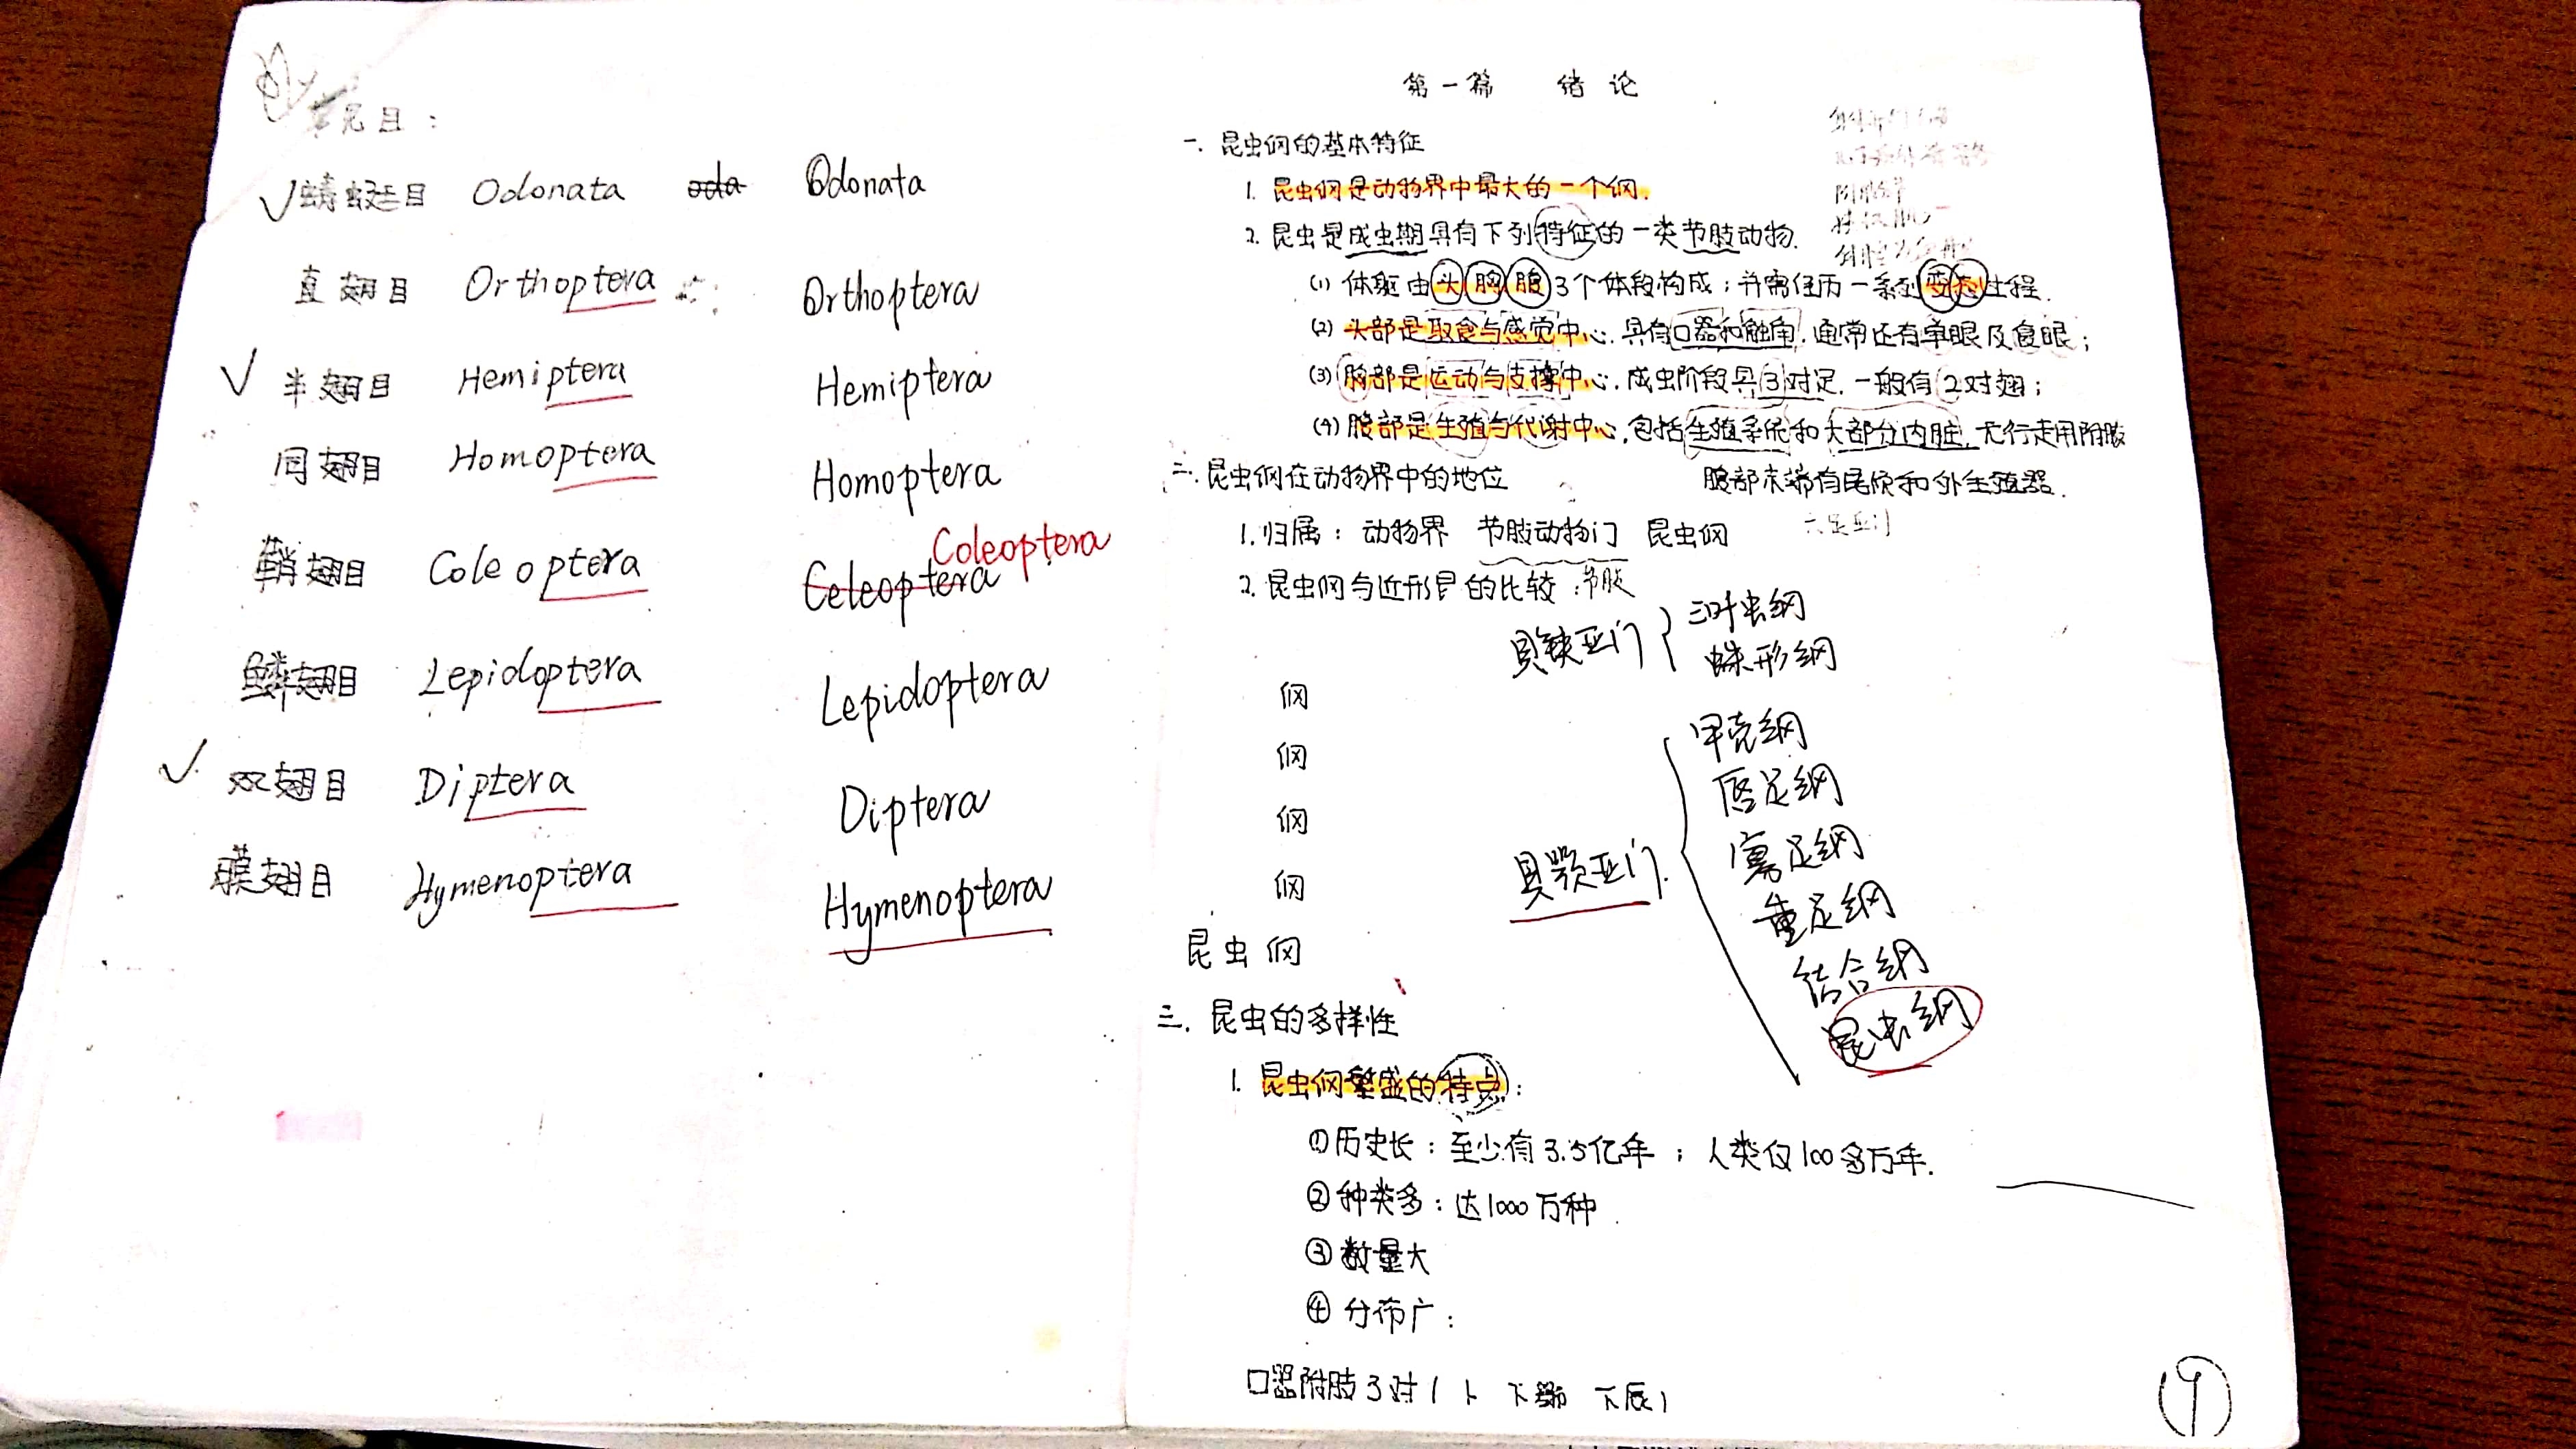 常见目：
√蜻蜓目 Odonata oda Odonata
直翅目 Orthoptera Orthoptera
√ 半翅目 Hemiptera Hemiptera
同翅目 Homoptera Homoptera
Coleoptera
鞘翅目 Coleoptera Celeoptera
鳞翅目 Lepidoptera Lepidoptera
√ 双翅目 Diptera Diptera
膜翅目 Hymenoptera Hymenoptera
第一篇 绪论
一. 昆虫纲的基本特征
1. 昆虫纲是动物界中最大的一个纲.
2. 昆虫是成虫期具有下列特征的一类节肢动物.
(1) 体躯由头胸腹3个体段构成；并需经历一系列变态过程.
(2) 头部是取食与感觉中心. 具有口器和触角. 通常还有单眼及复眼；
(3) 胸部是运动与支撑中心. 成虫阶段具3对足. 一般有2对翅；
(4) 腹部是生殖与代谢中心. 包括生殖系统和大部分内脏. 无行走用附肢
腹部末端有尾须和外生殖器.
二. 昆虫纲在动物界中的地位
1. 归属：动物界 节肢动物门 昆虫纲 六足亚门
2. 昆虫纲与近形昆的比较：节肢
具螯亚门 { 三叶虫纲
蛛形纲
纲
纲
纲
纲
昆虫纲
具颚亚门.
甲壳纲
唇足纲
寡足纲
重足纲
结合纲
昆虫纲
三. 昆虫的多样性
1. 昆虫纲繁盛的特点：
①历史长：至少有3.5亿年；人类仅100多万年.
②种类多：达1000万种.
③数量大
④分布广：
口器附肢3对(上 下颚 下唇)
9